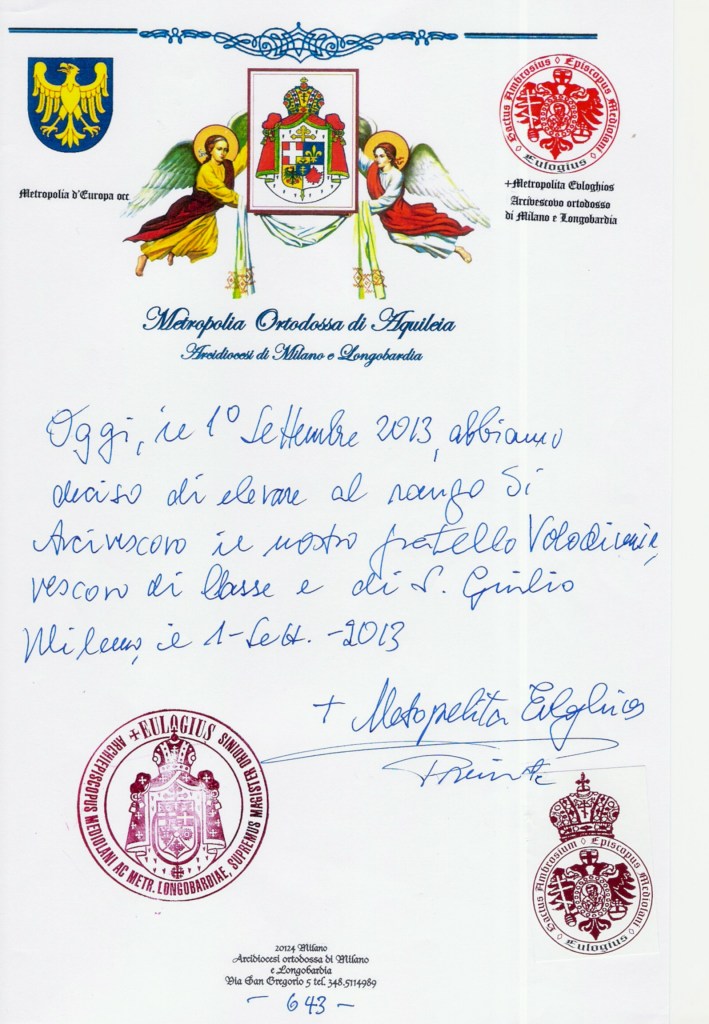 Metropolia d'Europa occ
Sactus Ambrosius Episcopus Mediolani
Eulogius
+Metropolita Evloghios
Arcivescovo ortodosso
di Milano e Longobardia
Metropolia Ortodossa di Aquileia
Arcidiocesi di Milano e Longobardia
Oggi, il 1° Settembre 2013, abbiamo
deciso di elevare al rango di
Arcivescovo il nostro fratello Volodimir,
vescovo di Classe e di S. Giulio
Milano, il 1-Sett.-2013
+ Metropolita Evloghios
+EULOGIUS
ARCHIEPISCOPUS MEDIOLANI AC METR. LONGOBARDIAE, SUPREMUS MAGISTER ORDINIS
Sactus Ambrosium Episcopus Mediolani
Eulogius
20124 Milano
Arcidiocesi ortodossa di Milano
e Longobardia
Via San Gregorio 5 tel. 348.5114989
- 643 -